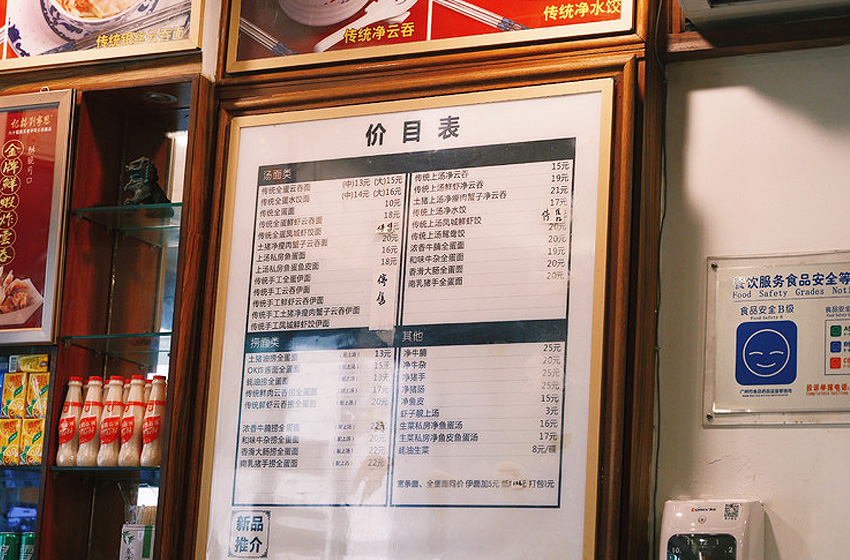 传统银丝云吞面
传统净云吞
传统净水饺
金牌鲜虾炸云吞
价目表
汤面类
传统全蛋云吞面 (中)13元 (大)15元
传统全蛋水饺面 (中)14元 (大)16元
传统全蛋面 10元
传统全蛋鲜虾云吞面 18元
传统全蛋凤城虾饺面 停售
土猪净瘦肉蟹子云吞面 20元
上汤私房鱼蛋面 16元
上汤私房鱼蛋鱼皮面 18元
传统手工全蛋伊面
传统手工云吞伊面
传统手工鲜虾云吞伊面
传统手工土猪净瘦肉蟹子云吞伊面
传统手工凤城鲜虾饺伊面
停售
传统上汤净云吞 15元
传统上汤鲜虾净云吞 19元
土猪上汤净瘦肉蟹子净云吞 21元
传统上汤净水饺 17元
传统上汤凤城虾饺 停售
传统上汤鸳鸯饺 20元
浓香牛腩全蛋面 20元
和味牛杂全蛋面 19元
香滑大肠全蛋面 20元
南乳猪手全蛋面 20元
捞面类
土猪油捞全蛋面 (配上汤) 13元
OK炸酱面全蛋面 (配上汤) 15元
蚝油捞全蛋面 (配上汤) 13元
传统鲜肉云吞捞全蛋面 (配上汤) 17元
传统鲜虾云吞捞全蛋面 (配上汤) 20元
浓香牛腩捞全蛋面 (配上汤) 22元
和味牛杂捞全蛋面 (配上汤) 20元
香滑大肠捞全蛋面 (配上汤) 22元
南乳猪手捞全蛋面 (配上汤) 22元
其他
净牛腩 25元
净牛杂 20元
净猪手 25元
净猪肠 25元
净鱼皮 15元
虾子靓上汤 3元
生菜私房净鱼蛋汤 16元
生菜私房净鱼皮鱼蛋汤 17元
蚝油生菜 8元/碟
宽条面、全蛋面同价 伊面加5元
打包1元
新品
推介
餐饮服务食品安全等
Food Safety Grades Noti
食品安全B级
Food Safety B
投诉举报电话